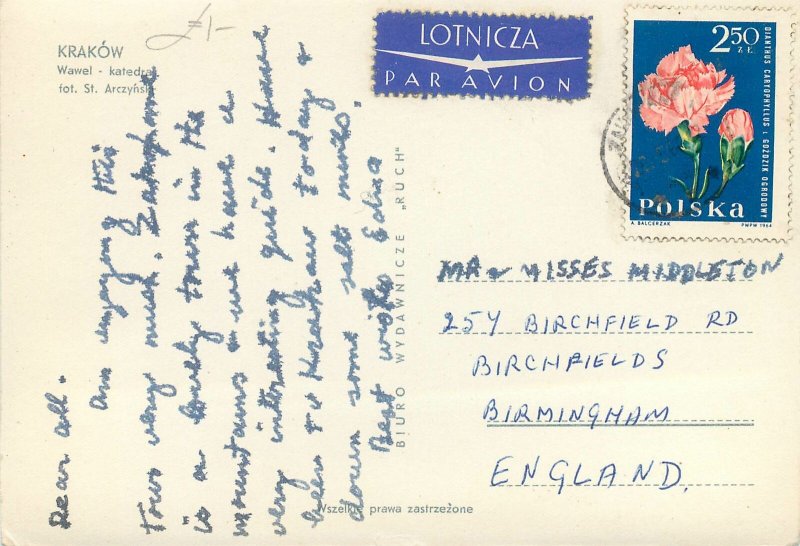 KRAKÓW
Wawel - katedra
fot. St. Arczyński
£1-
LOTNICZA
PAR AVION
2 50
ZŁ
DIANTHUS CARYOPHYLLUS · GOŹDZIK OGRODOWY
POLSKA
A. BALCERZAK
PWPW 1964
Dear all.
Am enjoying this
tour very much. Zakopane
is a lovely town in the
mountains & we have a
very interesting guide. Have
been to Krakow today &
down some salt mines.
Best wishes
BIURO WYDAWNICZE „RUCH"
MR & MISSES MIDDLETON
257 BIRCHFIELD RD
BIRCHFIELDS
BIRMINGHAM
ENGLAND.
Wszelkie prawa zastrzeżone